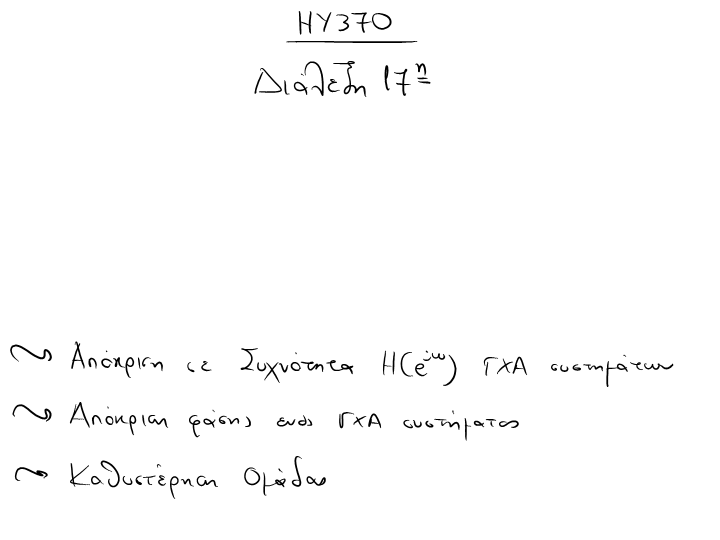 ΗΥ370
Διάλεξη 17η
Απόκριση σε Συχνότητα H(e^jω) ΓΧΑ συστημάτων
Απόκριση φάσης ενός ΓΧΑ συστήματος
Καθυστέρηση Ομάδας